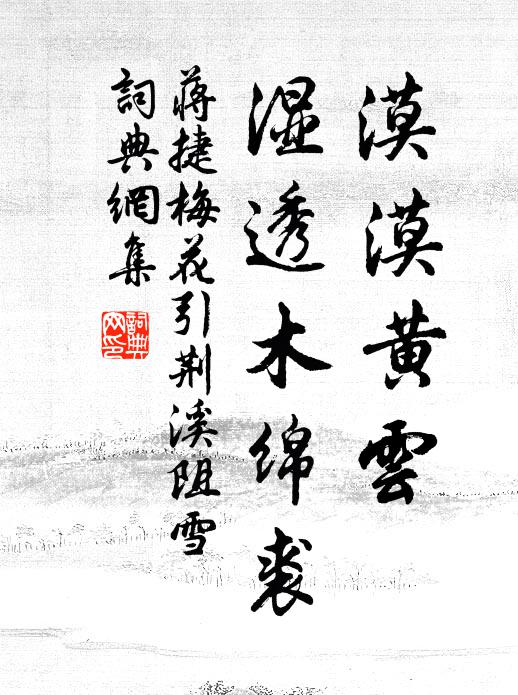 漠漠黄雲
湿透木绵裘
蒋捷梅花引荆溪阻雪
詞典網集
詞典网印